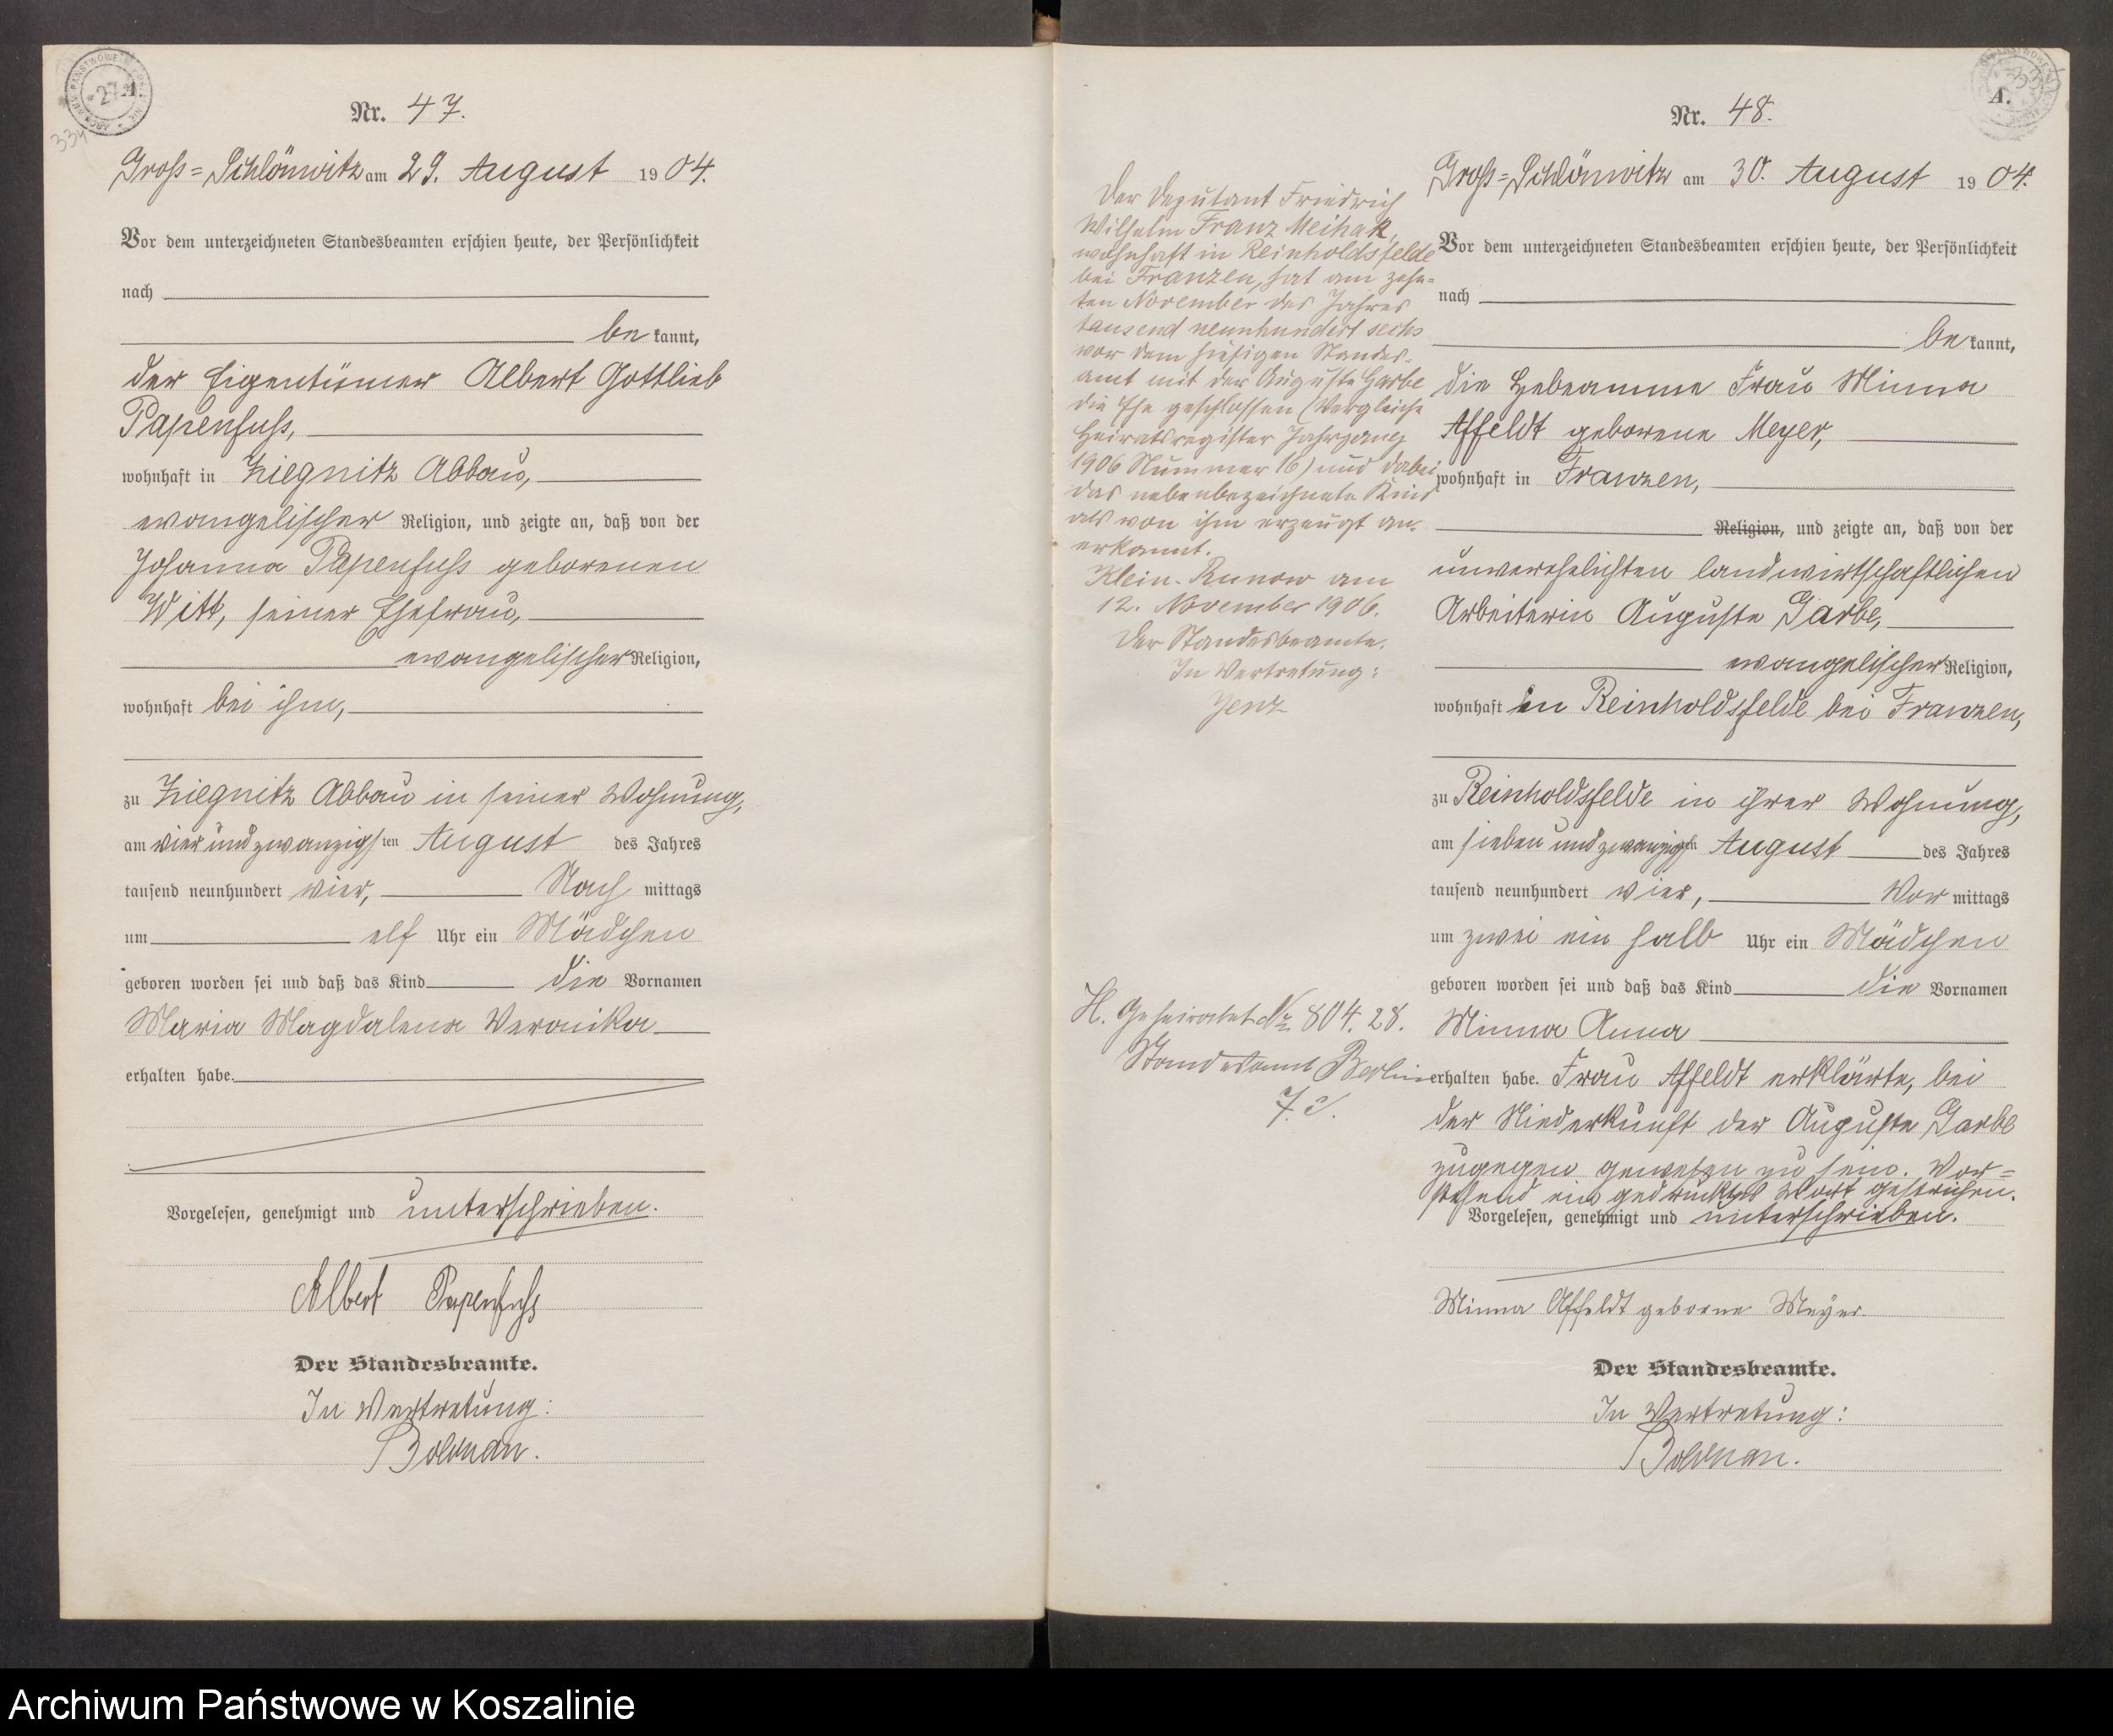 Nr. 47.
334
Groß=Schlönwitz am 29. August 1904.
Vor dem unterzeichneten Standesbeamten erschien heute, der Persönlichkeit
nach
be kannt,
der Eigentümer Albert Gottlieb
Papenfuß,
wohnhaft in Ziegnitz Abbau,
evangelischer Religion, und zeigte an, daß von der
Johanna Papenfuß geborenen
Witt, seiner Ehefrau,
evangelischer Religion,
wohnhaft bei ihm,
zu Ziegnitz Abbau in seiner Wohnung,
am vier und zwanzigsten August des Jahres
tausend neunhundert vier, Nach mittags
um elf Uhr ein Mädchen
geboren worden sei und daß das Kind die Vornamen
Maria Magdalena Veronika
erhalten habe.
Vorgelesen, genehmigt und unterschrieben.
Albert Papenfuß
Der Standesbeamte.
In Vertretung:
A.
Nr. 48.
Groß=Schlönwitz am 30. August 1904.
Vor dem unterzeichneten Standesbeamten erschien heute, der Persönlichkeit
nach
be kannt,
die Hebeamme Frau Minna
Affeldt geborene Meyer,
wohnhaft in Franzen,
Religion, und zeigte an, daß von der
unverehelichten landwirtschaftlichen
Arbeiterin Auguste Garbe,
evangelischer Religion,
wohnhaft in Reinholdsfelde bei Franzen,
zu Reinholdsfelde in ihrer Wohnung,
am sieben und zwanzigsten August des Jahres
tausend neunhundert vier, Vor mittags
um zwei ein halb Uhr ein Mädchen
geboren worden sei und daß das Kind die Vornamen
Minna Anna
erhalten habe. Frau Affeldt erklärte, bei
der Niederkunft der Auguste Garbe
zugegen gewesen zu sein. Vor=
stehend ein gedrucktes Wort gestrichen.
Vorgelesen, genehmigt und unterschrieben.
Minna Affeldt geborne Meyer
Der Standesbeamte.
In Vertretung:
Der Deputant Friedrich
Wilhelm Franz Meihak,
wohnhaft in Reinholdsfelde
bei Franzen, hat am zehn=
ten November des Jahres
tausend neunhundert sechs
vor dem hiesigen Standes-
amt mit der Auguste Garbe
die Ehe geschlossen (Vergleiche
Heiratsregister Jahrgang
1906 Nummer 16) und dabei
das nebenbezeichnete Kind
als von ihm erzeugt an-
erkannt.
Klein-Runow am
12. November 1906.
Der Standesbeamte.
In Vertretung:
Jenz
H. Geheiratet Nr 804. 28.
Standesamt Berlin
Archiwum Państwowe w Koszalinie